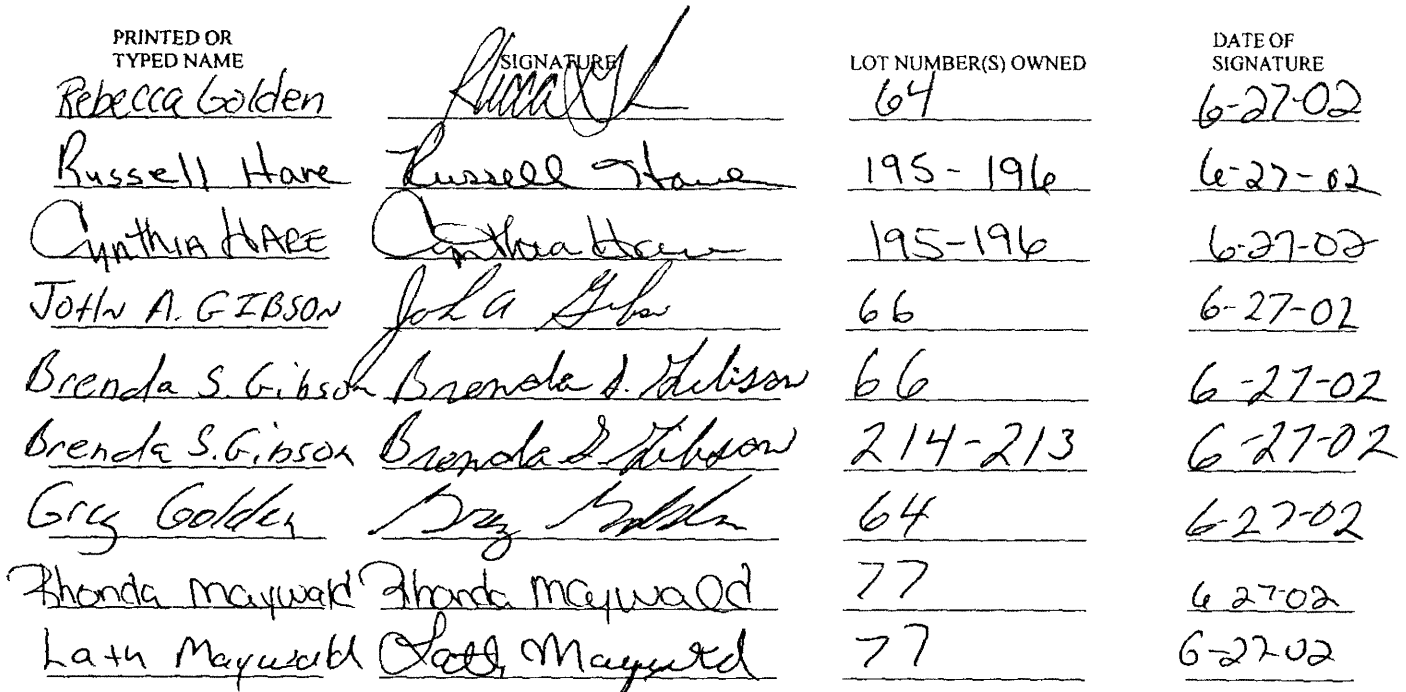 PRINTED OR TYPED NAME SIGNATURE LOT NUMBER(S) OWNED DATE OF SIGNATURE
Rebecca Golden 64 6-27-02
Russell Hare Russell Hare 195-196 6-27-02
Cynthia HARE Cynthia Hare 195-196 6-27-02
JOHN A. GIBSON John A Gibson 66 6-27-02
Brenda S. Gibson Brenda S. Gibson 66 6-27-02
Brenda S. Gibson Brenda S Gibson 214-213 6-27-02
Greg Golden Greg Golden 64 6-27-02
Rhonda Maywald Rhonda Maywald 77 6 27-02
Maywald Maywald 77 6-27-02